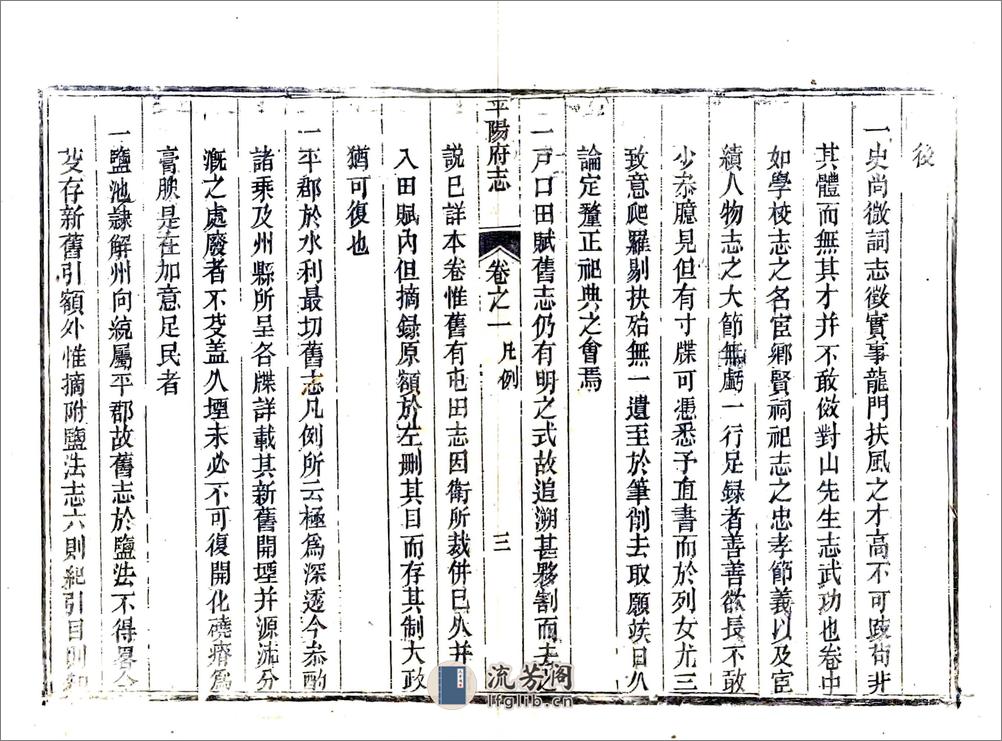 後
一史尚徵詞志徵實事龍門扶風之才高不可跂苟非
其體而無其才并不敢倣對山先生志武功也卷中
如學校志之名宦鄉賢祠祀志之忠孝節義以及宦
績人物志之大節無虧一行足録者善善欲長不敢
少叅臆見但有寸牒可憑悉予直書而於列女尤三
致意爬羅剔抉殆無一遺至於筆削去取願竢日久
論定釐正祀典之會焉
一戸口田賦舊志仍有明之式故追溯甚夥割而去之
平陽府志
卷之一
凡例
三
說已詳本卷惟舊有屯田志因衛所裁併已久并
入田賦內但摘録原額於左刪其目而存其制大政
猶可復也
一平郡於水利最切舊志凡例所云極爲深透今叅酌
諸乘及州縣所呈各牒詳載其新舊開堙并源流分
漑之處廢者不芟蓋久堙未必不可復開化磽瘠爲
膏腴是在加意足民者
一鹽池隷解州向統屬平郡故舊志於鹽法不得畧今
芟存新舊引額外惟摘附鹽法志六則紀引目則
流芳阁
lfglib.cn